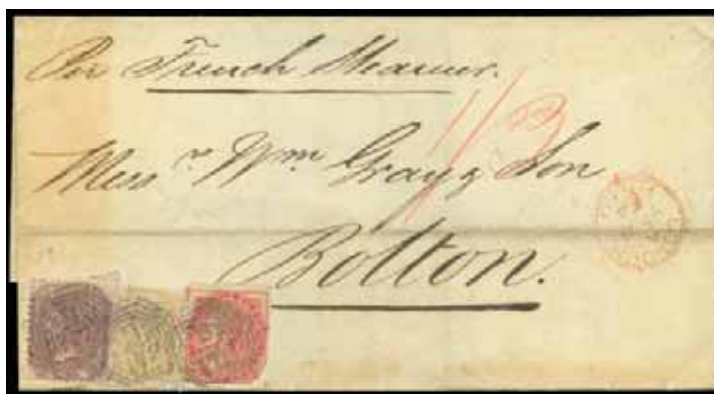 Per French Steamer.
1/3
Mess rs Wm Gray & Son
Bolton.